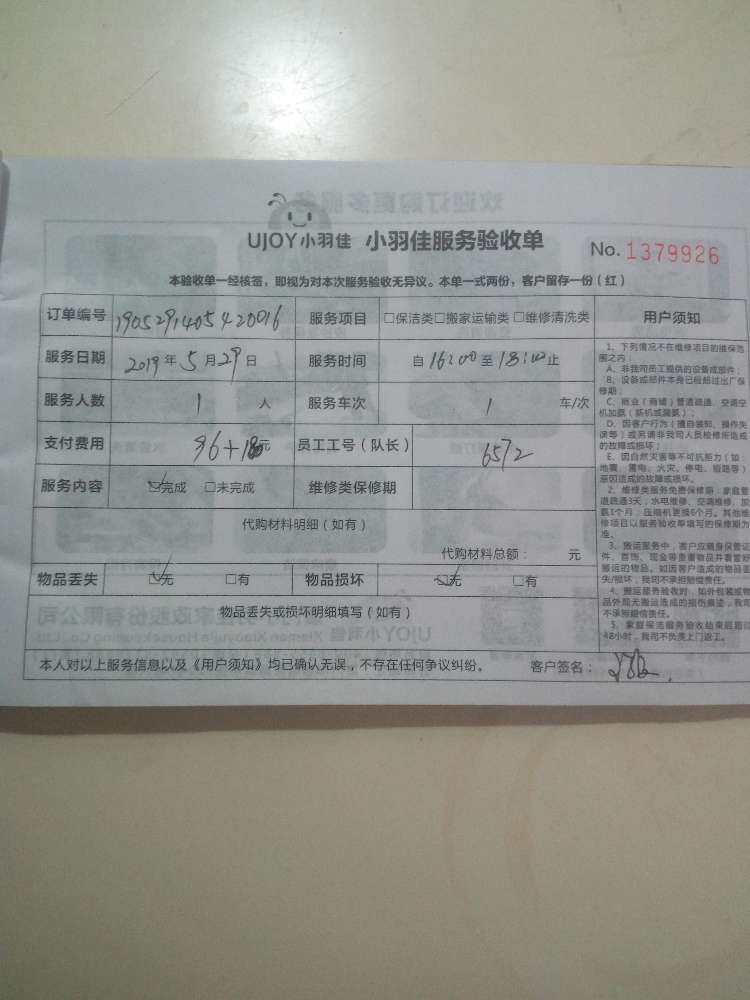 UJOY小羽佳 小羽佳服务验收单 No. 1379926
本验收单一经核签，即视为对本次服务验收无异议。本单一式两份，客户留存一份（红）
订单编号 1905291405420016 服务项目 □保洁类□搬家运输类 □维修清洗类
服务日期 2019年5月29日 服务时间 自16:00至18:00止
服务人数 1 人 服务车次 1 车/次
支付费用 元 员工工号（队长） 6572
服务内容 ☑完成 □未完成 维修类保修期
代购材料明细（如有）
代购材料总额： 元
物品丢失 ☑无 □有 物品损坏 ☑无 □有
物品丢失或损坏明细填写（如有）
本人对以上服务信息以及《用户须知》均已确认无误，不存在任何争议纠纷。 客户签名：
用户须知
1、下列情况不在维修项目的维保范
围之内：
A、非我司员工提供的设备或部件；
B、设备或部件本身已经超过出厂保
修期；
C、商业（商铺）管道疏通、空调空
机加氨（新机或漏氨）；
D、因客户行为（擅自装卸、操作失
误等）或另请非我司人员检修所造成
的故障或损坏；
E、因自然灾害等不可抗拒力（如：
地震、雷电、火灾、停电、鼠路等）
原因造成的故障或损坏。
2、维修类服务免费保修期：家庭管
道疏通3天，水电维修、空调维修、加
氨1个月，压缩机更换6个月。其他维
修项目以服务验收单填写的保修期为
准。
3、搬运服务中，客户应随身保管证
件、首饰、现金等贵重物品并看管好
搬运的物品。如因客户造成的物品丢
失/损坏，我司不承担赔偿责任。
4、搬运服务验收时，如外包装或物
品外观无搬运造成的损伤痕迹，我司
不承担赔偿责任。
5、家庭保洁服务验收结束后超过
48小时，我司不负责上门返工。